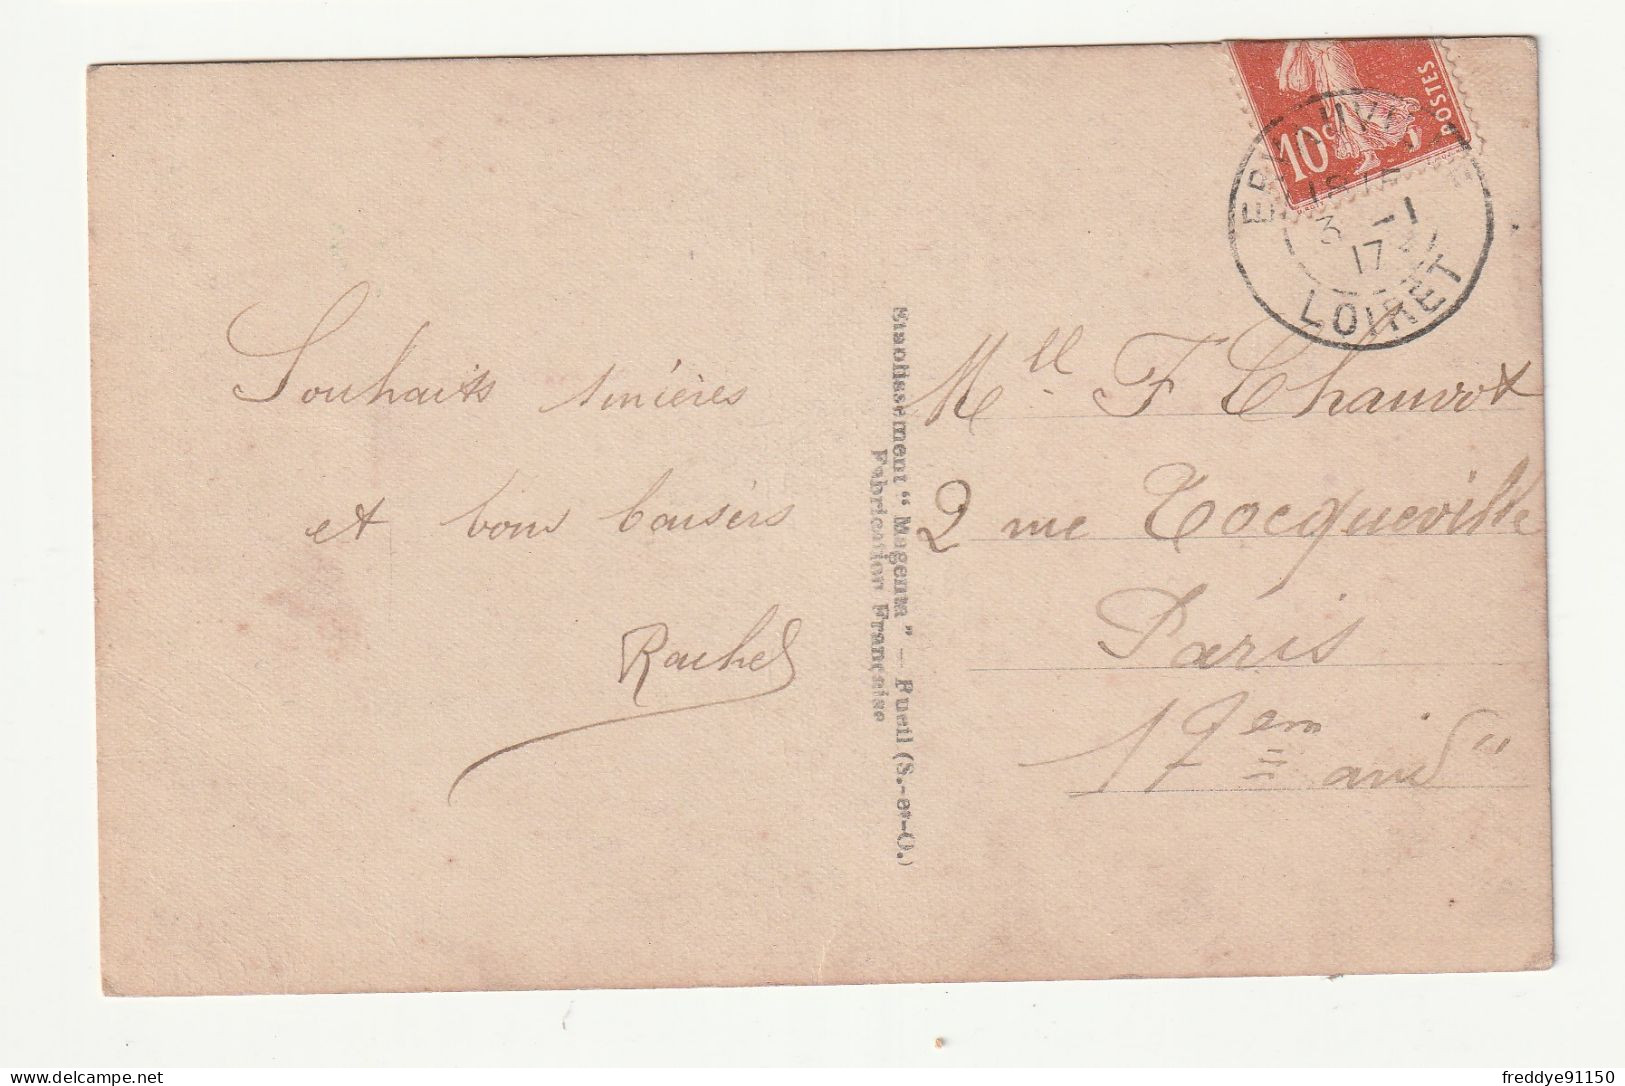 Souhaits sincères
et bons baisers
Rachel
Etablissement "Magenta" — Rueil (S.-et-O.)
Fabrication Française
10c
POSTES
ERVAUVILLE
3 -1
17
LOIRET
Mlle F Chauvot
2 rue Tocqueville
Paris
17em
freddye91150